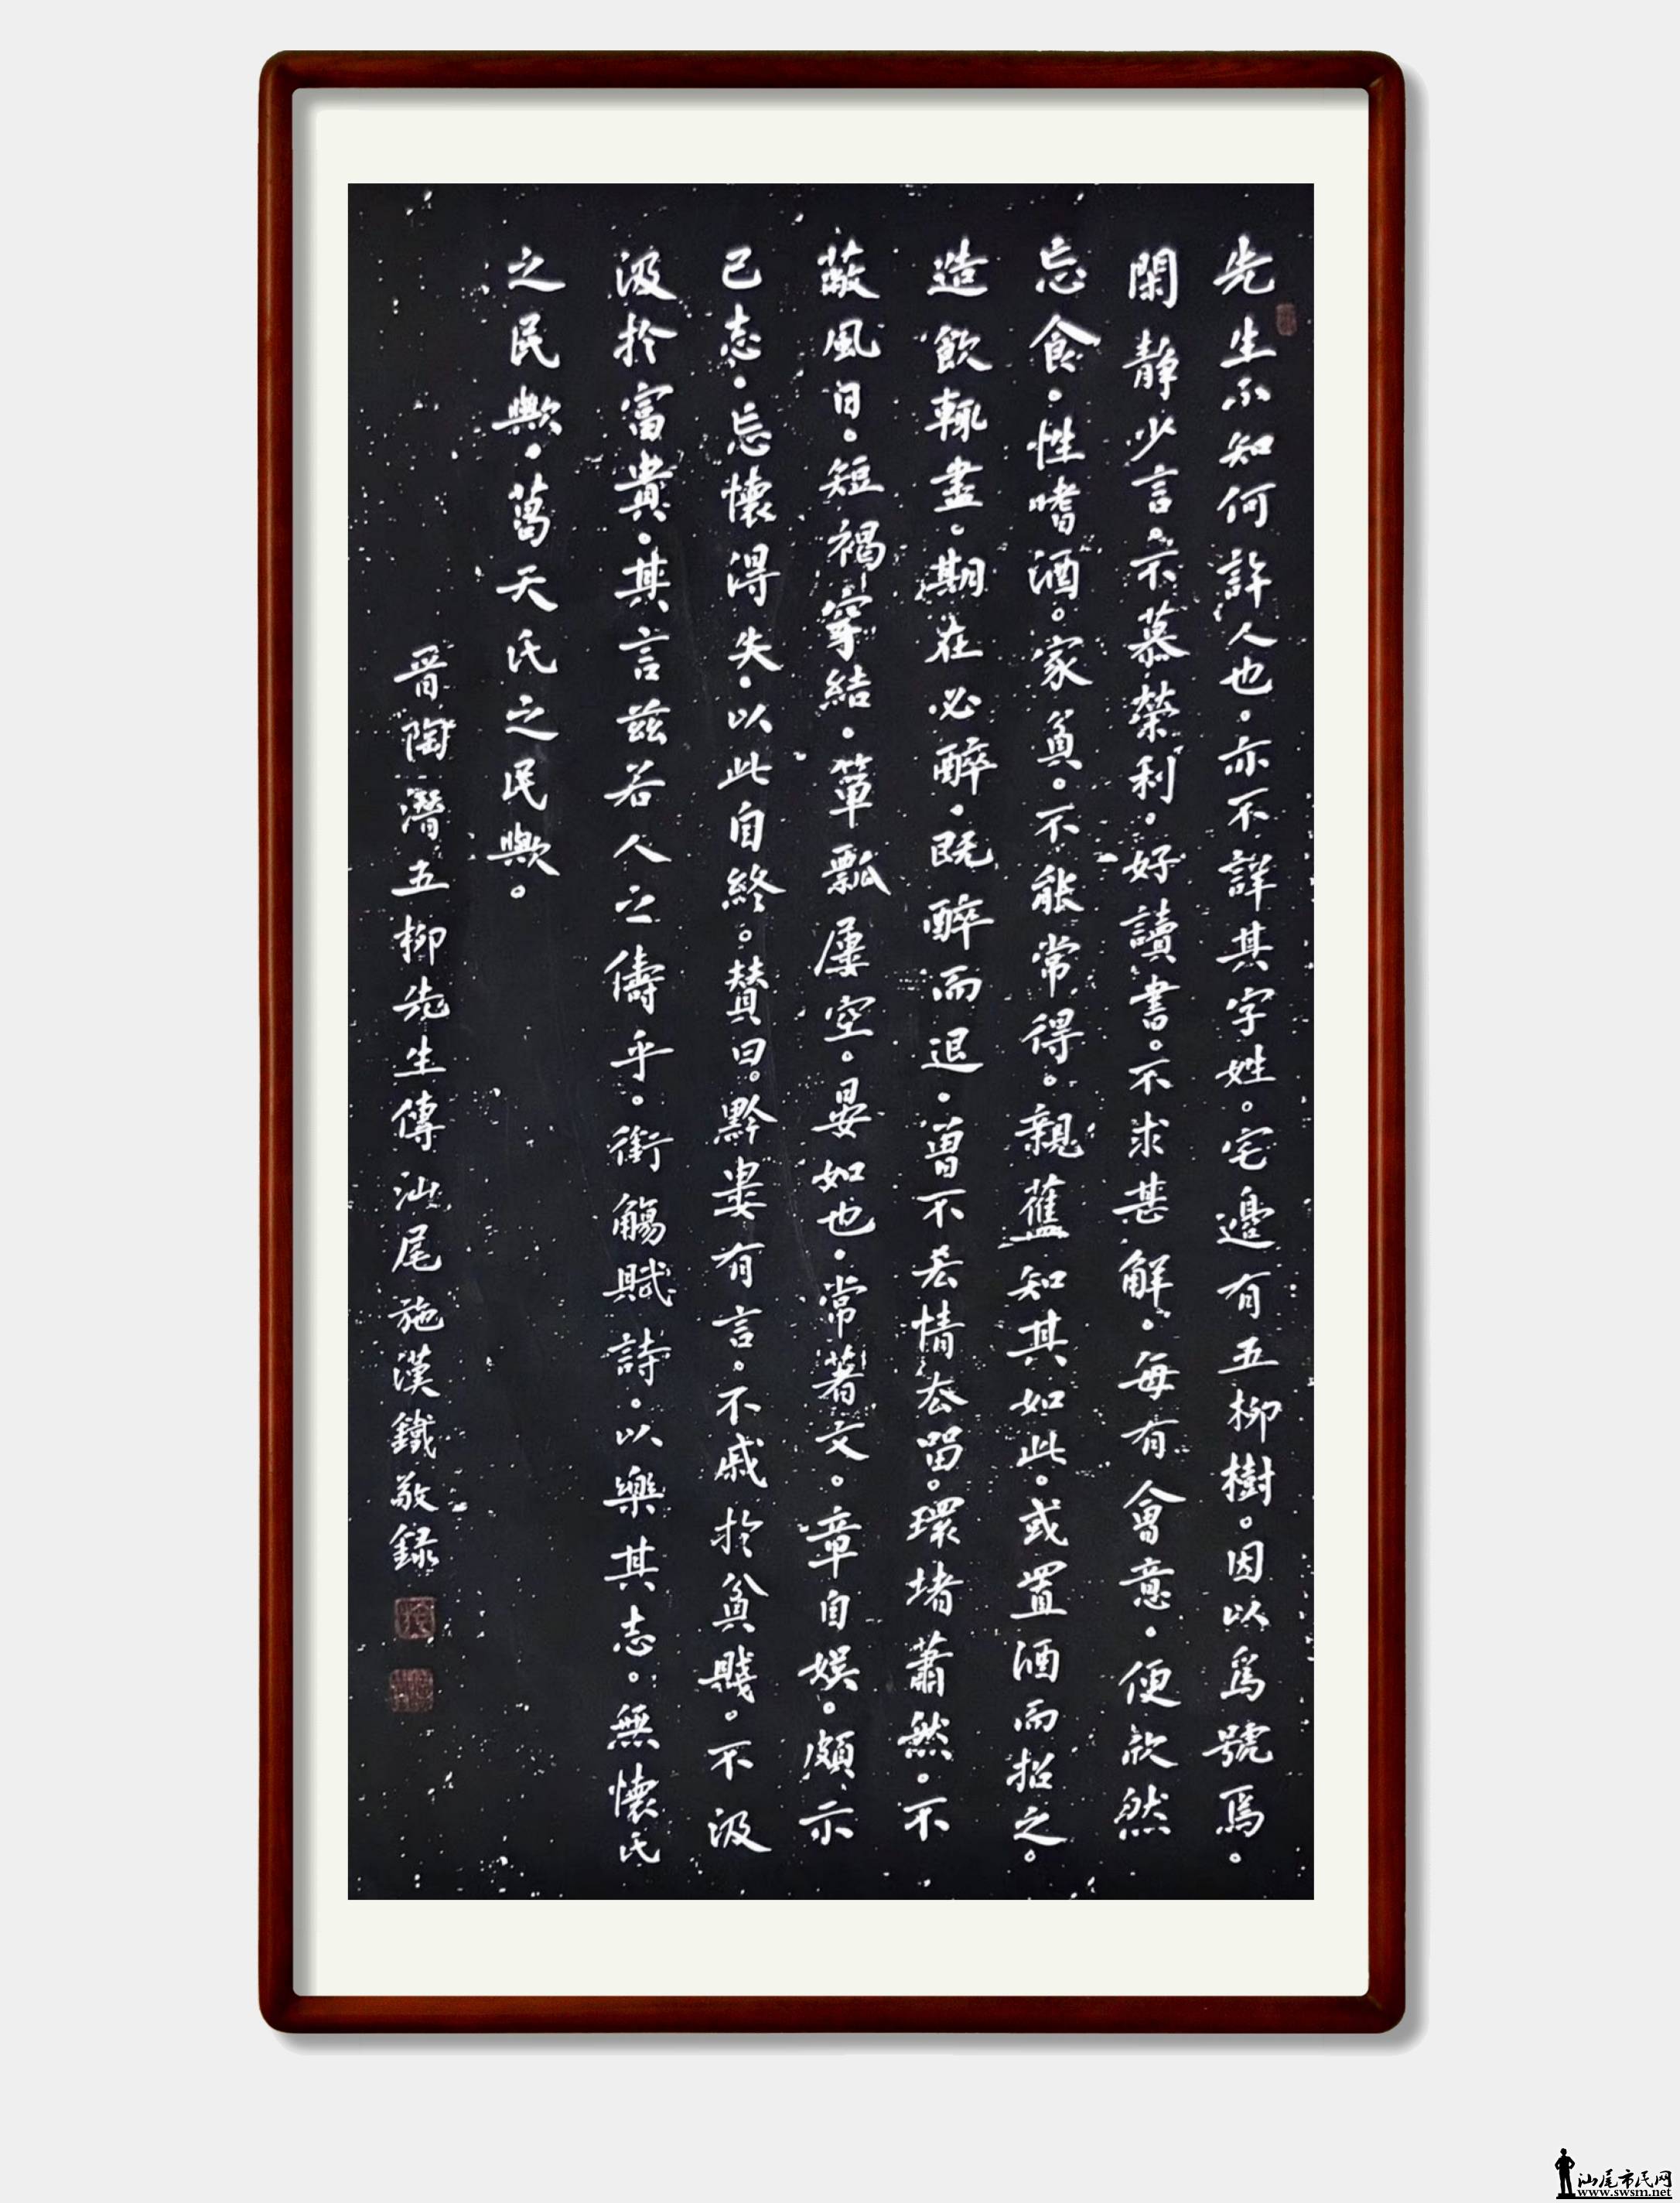 先生不知何許人也。亦不詳其字姓。宅邊有五柳樹。因以為號焉。
閑靜少言。不慕榮利。好讀書。不求甚解。每有會意。便欣然
忘食。性嗜酒。家貧。不能常得。親舊知其如此。或置酒而招之。
造飲輒盡。期在必醉。既醉而退。曾不吝情去留。環堵蕭然。不
蔽風日。短褐穿結。簞瓢屢空。晏如也。常著文。章自娛。頗示
己志。忘懷得失。以此自終。贊曰。黔婁有言。不戚於貧賤。不汲
汲於富貴。其言茲若人之儔乎。銜觴賦詩。以樂其志。無懷氏
之民歟。葛天氏之民歟。
晉陶潛五柳先生傳汕尾施漢鐵敬録
汕尾市民网
www.swsm.net